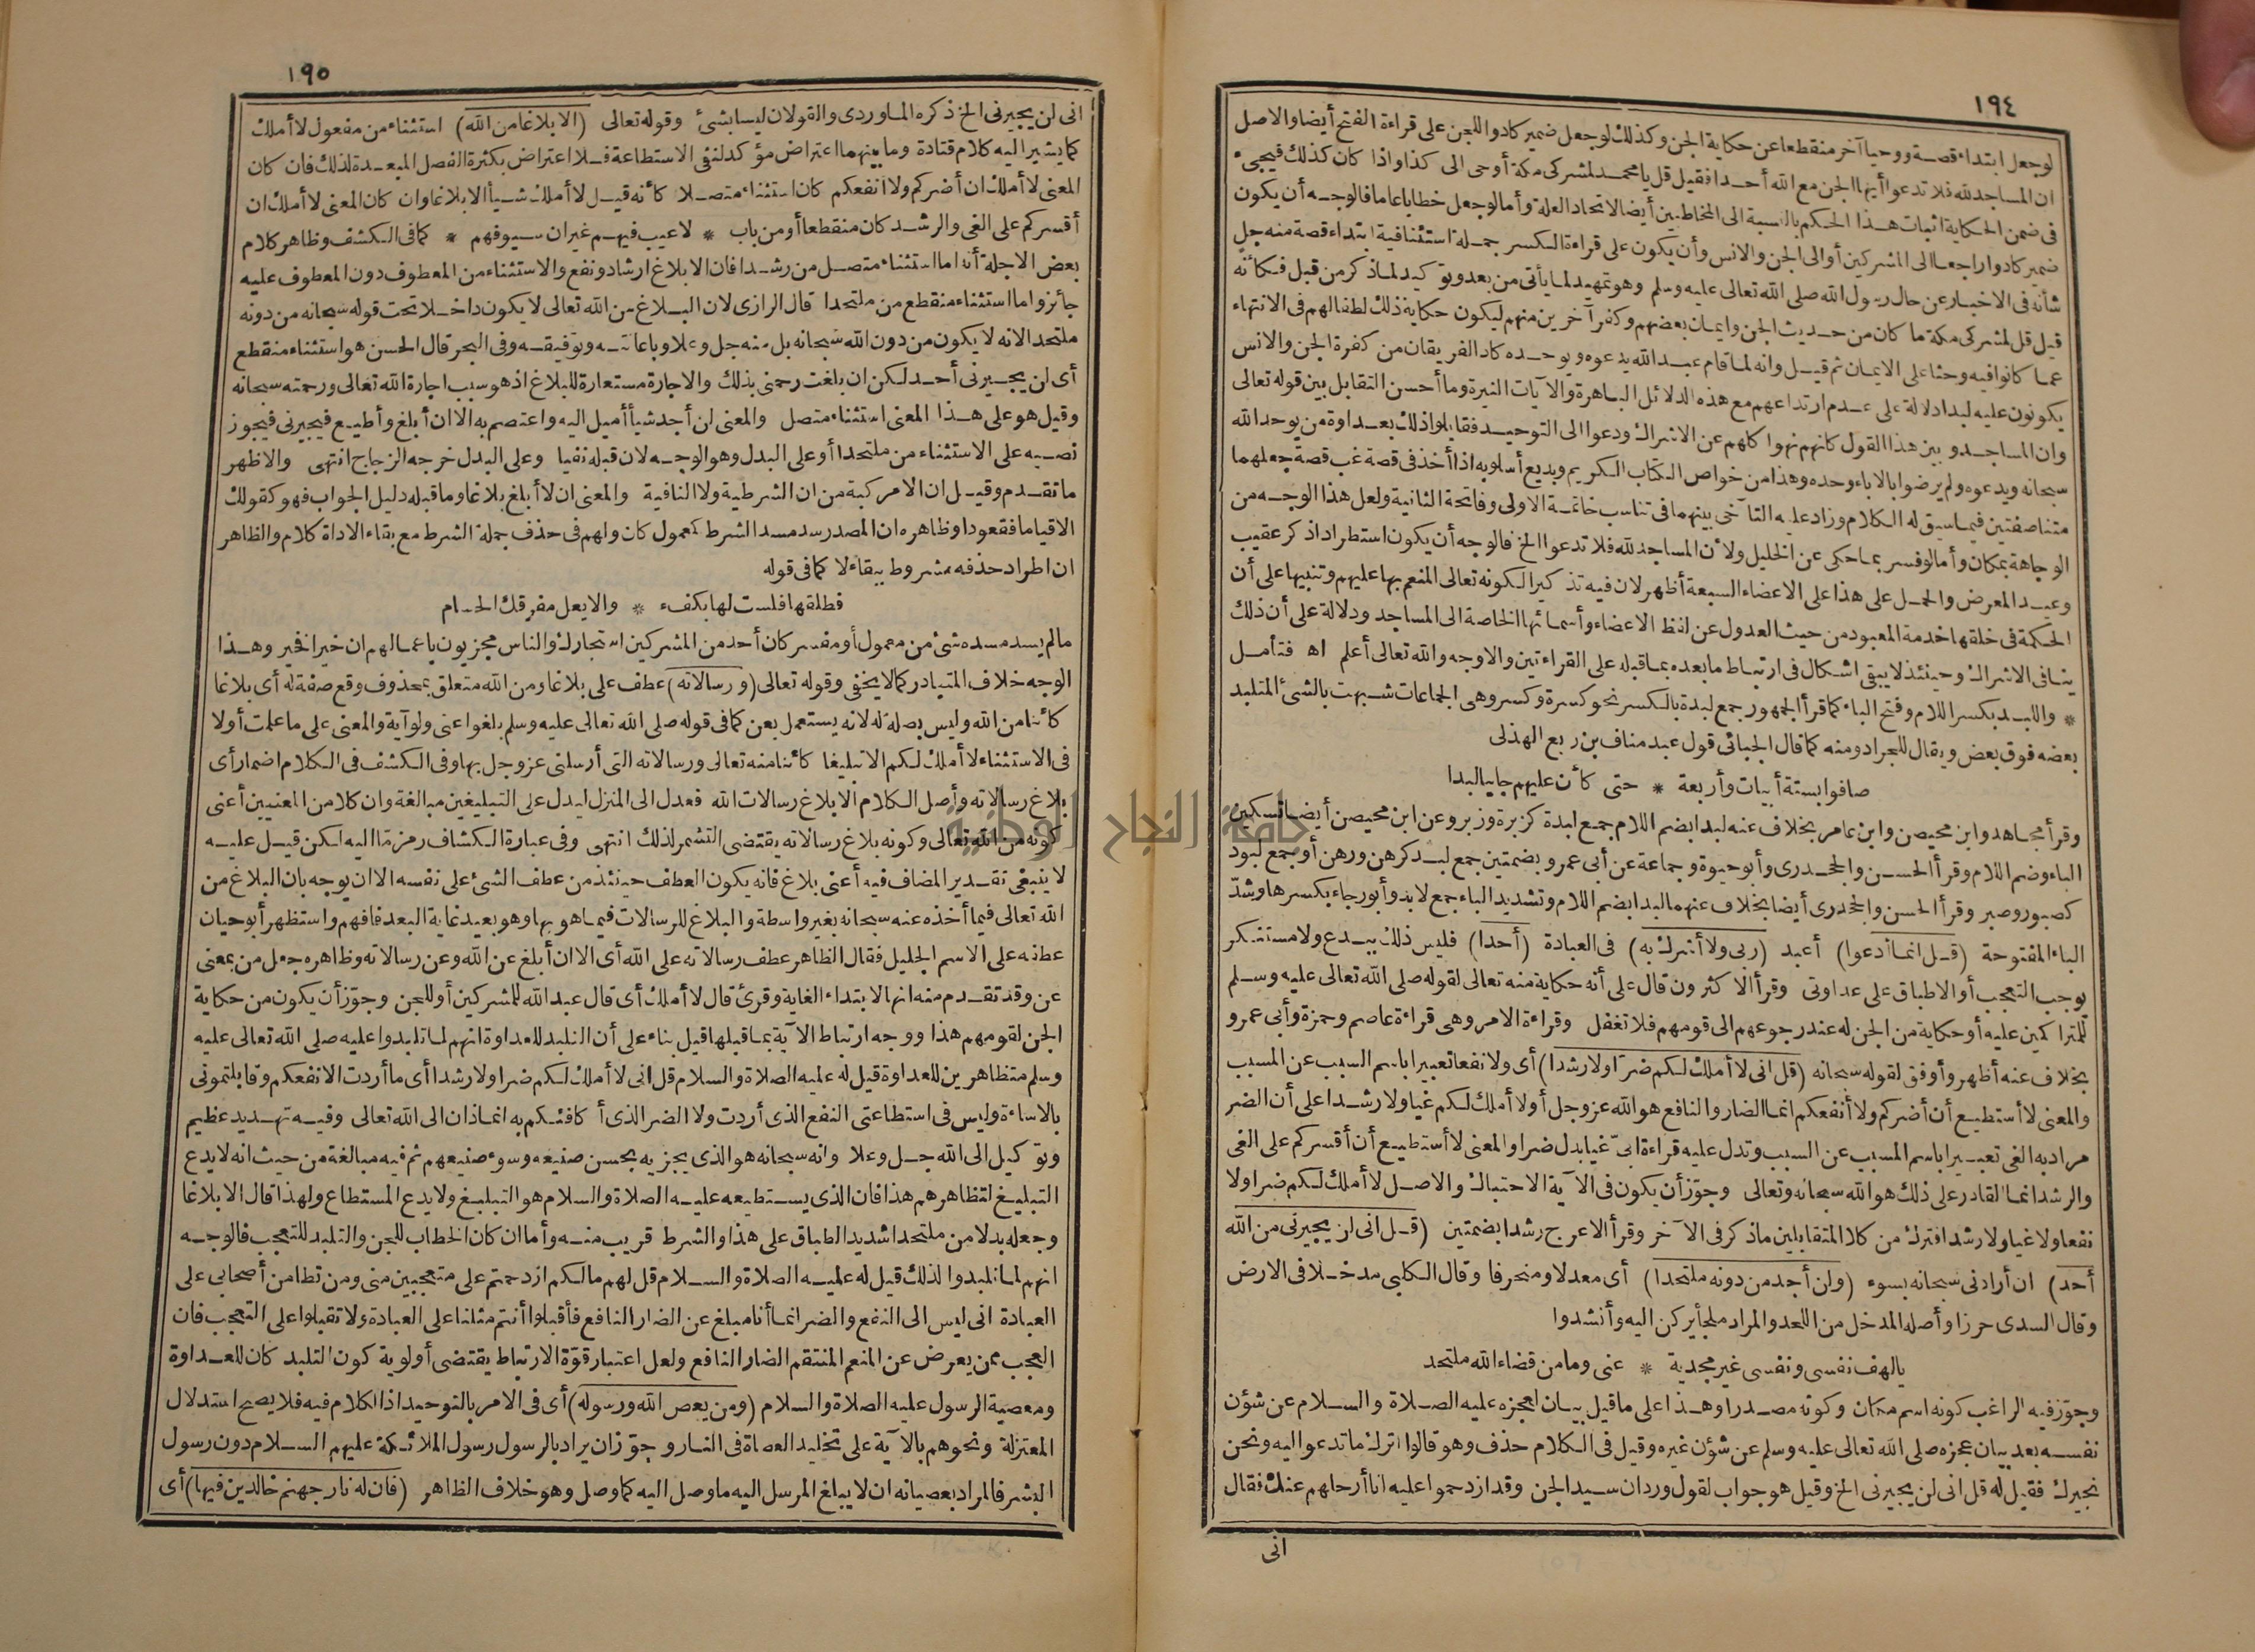 ١٩٤
لو جعل ابتداء قصة ووحيا آخر منقطعا عن حكاية الجن وكذلك لو جعل ضمير كادوا للجن على قراءة الفتح أيضا والاصل
ان المساجد لله فلا تدعوا أيها الجن مع الله أحدا فقيل قل يا محمد لمشركى مكة أوحى الى كذا واذا كان كذلك فيجىء
فى ضمن الحكاية اثبات هذا الحكم بالنسبة الى المخاطبين أيضا لاتحاد العلة وأما لو جعل خطابا عاما فالوجه أن يكون
ضمير كادوا راجعا الى المشركين أو الى الجن والانس وأن يكون على قراءة الكسر جملة استئنافية ابتداء قصة منه جل
شأنه فى الاخبار عن حال رسول الله صلى الله تعالى عليه وسلم وهو تمهيد لما يأتى من بعد وتوكيد لما ذكر من قبل فكأنه
قيل قل لمشركى مكة ما كان من حديث الجن وايمان بعضهم وكفر آخرين منهم ليكون حكاية ذلك لطفا لهم فى الانتهاء
عما كانوا فيه وحثا على الايمان ثم قيل وانه لما قام عبد الله يدعوه ويوحده كاد الفريقان من كفرة الجن والانس
يكونون عليه لبدا دلالة على عدم ارتداعهم مع هذه الدلائل الباهرة والآيات النيرة وما أحسن التقابل بين قوله تعالى
وان المساجد و بين هذا القول كانهم نهوا كلهم عن الاشراك ودعوا الى التوحيد فقابلوا ذلك بعداوة من يوحد الله
سبحانه ويدعوه ولم يرضوا بالاباء وحده وهذا من خواص الكتاب الكريم وبديع أسلوبه اذا أخذ فى قصة غب قصة جعلهما
متناصفتين فيما سيق له الكلام وزاد عليه التآخى بينهما فى تناسب خاتمة الاولى وفاتحة الثانية ولعل هذا الوجه من
الوجاهة بمكان وأما لو فسر بما حكى عن الخليل ولأن المساجد لله فلا تدعوا الخ فالوجه أن يكون استطرادا ذكر عقيب
وعيد المعرض والحمل على هذا على الاعضاء السبعة أظهر لان فيه تذكيرا لكونه تعالى المنعم بها عليهم وتنبيها على أن
الحكمة فى خلقها خدمة المعبود من حيث العدول عن لفظ الاعضاء وأسمائها الخاصة الى المساجد ودلالة على أن ذلك
ينافى الاشراك وحينئذ لا يبقى اشكال فى ارتباط ما بعده بما قبله على القراءتين والاوجه والله تعالى أعلم اه فتأمل
* واللبد بكسر اللام وفتح الباء كما قرأ الجمهور جمع لبدة بالكسر نحو كسرة وكسر وهى الجماعات شبهت بالشىء المتلبد
بعضه فوق بعض ويقال للجراد ومنه كما قال الجبائى قول عبد مناف بن ربع الهذلى
صافوا بستة أبيات وأربعة * حتى كأن عليهم جابيا لبدا
وقرأ مجاهد وابن محيصن وابن عامر بخلاف عنه لبدا بضم اللام جمع لبدة كزبرة وزبر وعن ابن محيصن أيضا تسكين
الباء وضم اللام وقرأ الحسن والجحدرى وأبو حيوة وجماعة عن أبى عمرو بضمتين جمع لبد كرهن ورهن أو جمع لبود
كصبور وصبر وقرأ الحسن والجحدرى أيضا بخلاف عنهما لبدا بضم اللام وتشديد الباء جمع لابد وأبو رجاء بكسرها وشدّ
الباء المفتوحة (قل انما أدعوا) أعبد (ربى ولا أشرك به) فى العبادة (أحدا) فليس ذلك ببدع ولا مستنكر
يوجب التعجب أو الاطباق على عداوتى وقرأ الاكثرون قال على أنه حكاية منه تعالى لقوله صلى الله تعالى عليه وسلم
للمتراكمين عليه أو حكاية من الجن له عند رجوعهم الى قومهم فلا تغفل وقراءة الامر وهى قراءة عاصم وحمزة وأبى عمرو
بخلاف عنه أظهر وأوفق لقوله سبحانه (قل انى لا أملك لكم ضرّا ولا رشدا) أى ولا نفعا تعبيرا باسم السبب عن المسبب
والمعنى لا أستطيع أن أضركم ولا أنفعكم انما الضار والنافع هو الله عز وجل أو لا أملك لكم غيا ولا رشدا على أن الضر
مراد به الغى تعبيرا باسم المسبب عن السبب وتدل عليه قراءة ابىّ غيا بدل ضرا والمعنى لا أستطيع أن أقسركم على الغى
والرشد انما القادر على ذلك هو الله سبحانه وتعالى وجوّز أن يكون فى الآية الاحتباك والاصل لا أملك لكم ضرا ولا
نفعا ولا غيا ولا رشدا فترك من كلا المتقابلين ما ذكر فى الآخر وقرأ الاعرج رشدا بضمتين (قل انى لن يجيرنى من الله
أحد) ان أرادنى سبحانه بسوء (ولن أجد من دونه ملتحدا) أى معدلا ومنحرفا وقال الكلبى مدخلا فى الارض
وقال السدى حرزا وأصله المدخل من اللحد والمراد ملجأ يركن اليه وأنشدوا
يا لهف نفسى ونفسى غير مجدية * عنى وما من قضاء الله ملتحد
وجوّز فيه الراغب كونه اسم مكان وكونه مصدرا وهذا على ما قيل بيان لعجزه عليه الصلاة والسلام عن شؤن
نفسه بعد بيان عجزه صلى الله تعالى عليه وسلم عن شؤن غيره وقيل فى الكلام حذف وهو قالوا اترك ما تدعو اليه ونحن
نجيرك فقيل له قل انى لن يجيرنى الخ وقيل هو جواب لقول وردان سيد الجن وقد ازدحموا عليه انا أرحلهم عنك فقال
انى
١٩٥
انى لن يجيرنى الخ ذكره الماوردى والقولان ليسا بشئ وقوله تعالى (الا بلاغا من الله) استثناء من مفعول لا أملك
كما يشير اليه كلام قتادة وما بينهما اعتراض مؤكد لنفى الاستطاعة فلا اعتراض بكثرة الفصل المبعدة لذلك فان كان
المعنى لا أملك ان أضركم ولا أنفعكم كان استثناء متصلا كأنه قيل لا أملك شيأ الا بلاغا وان كان المعنى لا أملك ان
أقسركم على الغى والرشد كان منقطعا أو من باب * لا عيب فيهم غير ان سيوفهم * كما فى الكشف وظاهر كلام
بعض الاجلة أنه اما استثناء متصل من رشدا فان الابلاغ ارشاد ونفع والاستثناء من المعطوف دون المعطوف عليه
جائز واما استثناء منقطع من ملتحدا قال الرازى لان البلاغ من الله تعالى لا يكون داخلا تحت قوله سبحانه من دونه
ملتحدا لانه لا يكون من دون الله سبحانه بل منه جل وعلا وباعانته وتوفيقه وفى البحر قال الحسن هو استثناء منقطع
أى لن يجيرنى أحد لكن ان بلغت رحمنى بذلك والاجارة مستعارة للبلاغ اذ هو سبب اجارة الله تعالى ورحمته سبحانه
وقيل هو على هذا المعنى استثناء متصل والمعنى لن أجد شيأ أميل اليه واعتصم به الا ان أبلغ وأطيع فيجيرنى فيجوز
نصبه على الاستثناء من ملتحدا أو على البدل وهو الوجه لان قبله نفيا وعلى البدل خرجه الزجاج انتهى والاظهر
ما تقدم وقيل ان الا مركبة من ان الشرطية ولا النافية والمعنى ان لا أبلغ بلاغا وما قبله دليل الجواب فهو كقولك
الا قياما فقعودا وظاهره ان المصدر سد مسد الشرط كمعمول كان ولهم فى حذف جملة الشرط مع بقاء الاداة كلام والظاهر
ان اطراد حذفه مشروط ببقاء لا كما فى قوله
فطلقها فلست لها بكفء * والا يعل مفرقك الحسام
ما لم يسد مسده شئ من معمول أو مفسر كان أحد من المشركين استجارك والناس مجزيون باعمالهم ان خيرا فخير وهذا
الوجه خلاف المتبادر كما لا يخفى وقوله تعالى (ورسالاته) عطف على بلاغا ومن الله متعلق بمحذوف وقع صفة له أى بلاغا
كائنا من الله وليس بصلة له لانه يستعمل بعن كما فى قوله صلى الله تعالى عليه وسلم بلغوا عنى ولو آية والمعنى على ما علمت أولا
فى الاستثناء لا أملك لكم الا تبليغا كائنا منه تعالى ورسالاته التى أرسلنى عز وجل بها وفى الكشف فى الكلام اضمار أى
بلاغ رسالاته وأصل الكلام الا بلاغ رسالات الله فعدل الى المنزل ليدل على التبليغين مبالغة وان كلا من المعنيين أعنى
كونه من الله تعالى وكونه بلاغ رسالاته يقتضى التشمر لذلك انتهى وفى عبارة الكشاف رمز ما اليه لكن قيل عليه
لا ينبغى تقدير المضاف فيه أعنى بلاغ فانه يكون العطف حينئذ من عطف الشئ على نفسه الا ان يوجه بان البلاغ من
الله تعالى فيما أخذه عنه سبحانه بغير واسطة والبلاغ للرسالات فيما هو بها وهو بعيد غاية البعد فافهم واستظهر أبو حيان
عطفه على الاسم الجليل فقال الظاهر عطف رسالاته على الله أى الا ان أبلغ عن الله وعن رسالاته وظاهره جعل من بمعنى
عن وقد تقدم منه انها لابتداء الغاية وقرئ قال لا أملك أى قال عبد الله للمشركين أو للجن وجوّز أن يكون من حكاية
الجن لقومهم هذا ووجه ارتباط الآية بما قبلها قيل بناء على أن التلبد للعداوة انهم لما تلبدوا عليه صلى الله تعالى عليه
وسلم متظاهرين للعداوة قيل له عليه الصلاة والسلام قل انى لا أملك لكم ضرا ولا رشدا أى ما أردت الا نفعكم وقابلتمونى
بالاساءة وليس فى استطاعتى النفع الذى أردت ولا الضر الذى أكافئكم به انما ذان الى الله تعالى وفيه تهديد عظيم
وتوكيل الى الله جل وعلا وانه سبحانه هو الذى يجزيه بحسن صنيعه وسوء صنيعهم ثم فيه مبالغة من حيث انه لا يدع
التبليغ لتظاهرهم هذا فان الذى يستطيعه عليه الصلاة والسلام هو التبليغ ولا يدع المستطاع ولهذا قال الا بلاغا
وجعله بدلا من ملتحدا شديد الطباق على هذا والشرط قريب منه وأما ان كان الخطاب للجن والتلبد للتعجب فالوجه
انهم لما تلبدوا لذلك قيل له عليه الصلاة والسلام قل لهم مالكم ازدحمتم على متعجبين منى ومن تطامن أصحابى على
العبادة انى ليس الى النفع والضر انما أنا مبلغ عن الضار النافع فأقبلوا أنتم مثلنا على العبادة ولا تقبلوا على التعجب فان
العجب ممن يعرض عن المنعم المنتقم الضار النافع ولعل اعتبار قوّة الارتباط يقتضى أولوية كون التلبد كان للعداوة
ومعصية الرسول عليه الصلاة والسلام (ومن يعص الله ورسوله) أى فى الامر بالتوحيد اذ الكلام فيه فلا يصح استدلال
المعتزلة ونحوهم بالآية على تخليد العصاة فى النار وجوّز ان يراد بالرسول رسول الملائكة عليهم السلام دون رسول
البشر فالمراد بعصيانه ان لا يبلغ المرسل اليه ما وصل اليه كما وصل وهو خلاف الظاهر (فان له نار جهنم خالدين فيها) أى
جامعة النجاح الوطنية